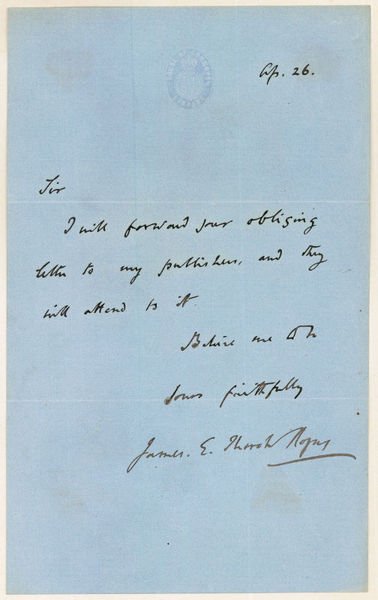 Ap. 26.
Sir
I will forward your obliging
letter to my publishers, and they
will attend to it
Believe me to be
Yours faithfully
James. E. Thorold Rogers